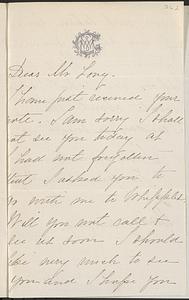 Dear Mr Long.
I have just received your
note. I am sorry I shall
not see you today as
I had not forgotten
that I asked you to
go with me to Whipple's
Will you not call &
see us soon I should
like very much to see
you and I hope you